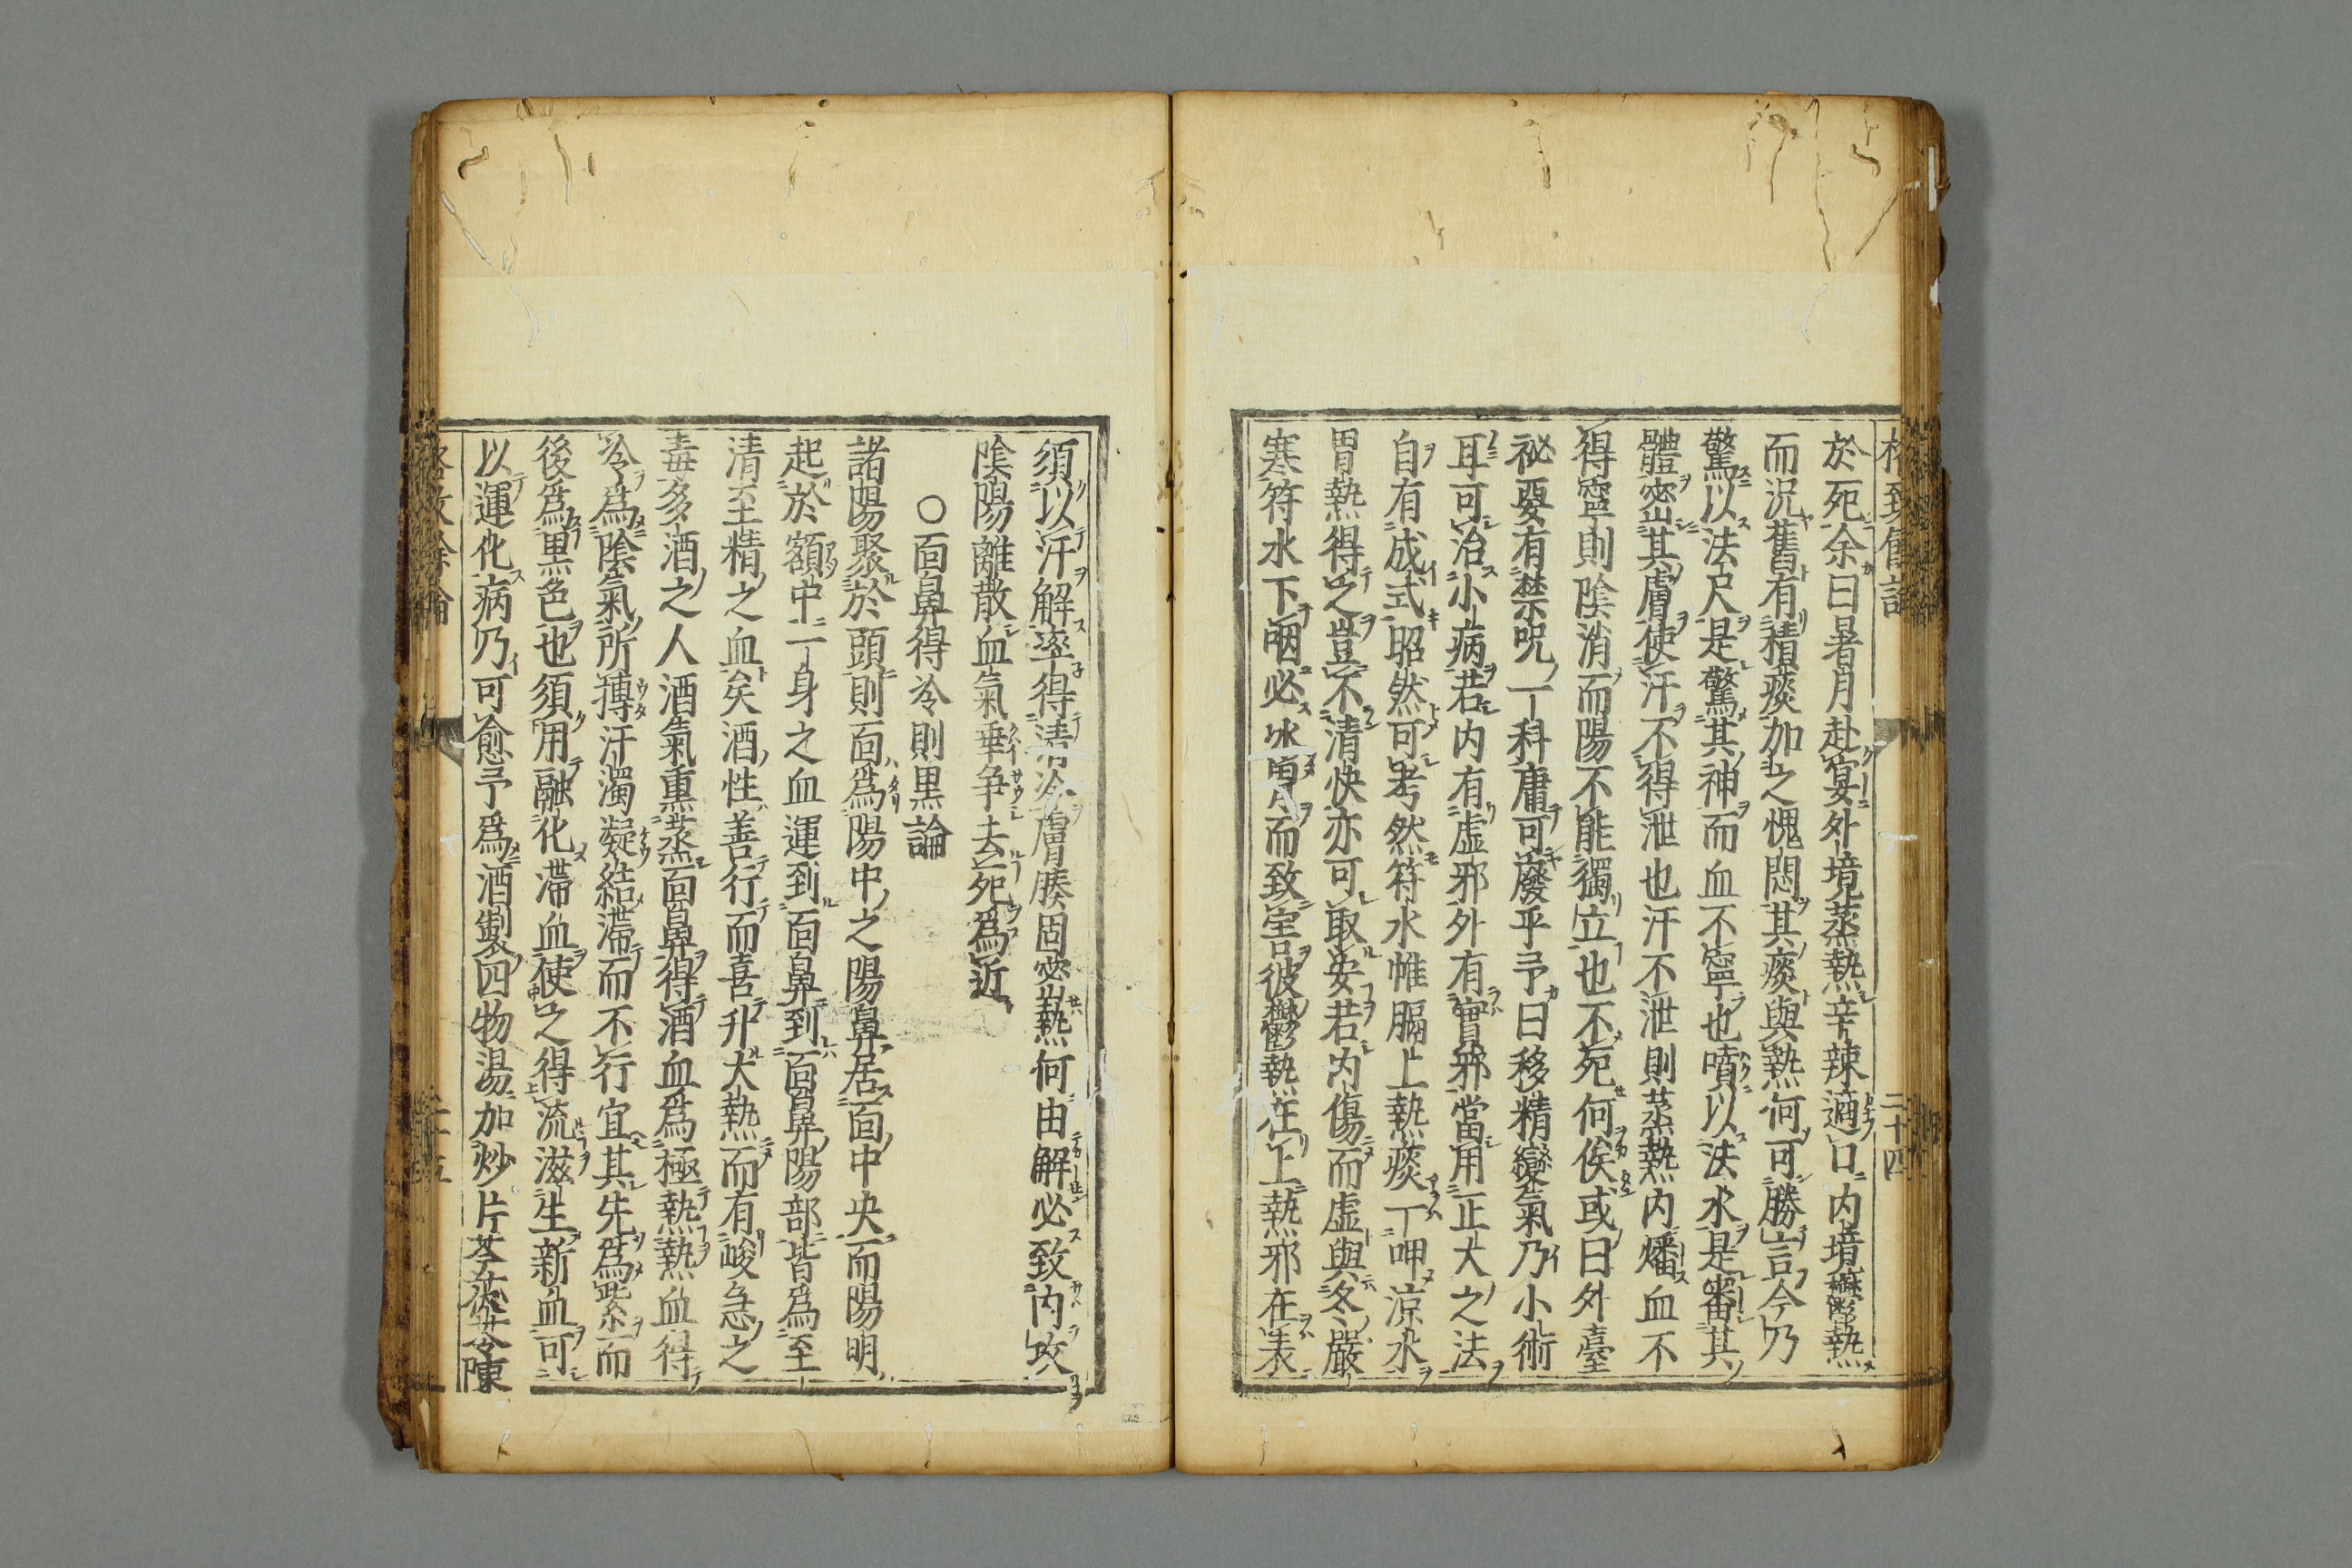 於死余曰暑月赴宴外境蒸熱辛辣適口内境鬱熱
而況舊有積痰加之愧悶其痰與熱何可勝言今乃
驚以法尺是驚其神而血不寧也噴以法水是審其
體密其膚使汗不得泄也汗不泄則蒸熱内燔血不
得寧則陰消而陽不能獨立也不死何俟或曰外臺
祕要有禁呪一科庸可廢乎予曰移精變氣乃小術
耳可治小病若内有虚邪外有實邪當用正大之法
自有成式昭然可考然符水惟膈上熱痰一呷凉水
胃熱得之豈不清快亦可取安若内傷而虚與冬嚴
寒符水下咽必冰胃而致害彼鬱熱在上熱邪在表
二十四
須以汗解率得清冷膚腠固密熱何由解必致内攻
陰陽離散血氣乖争去死爲近
○面鼻得冷則黒論
諸陽聚於頭則面爲陽中之陽鼻居面中央而陽明
起於額中一身之血運到面鼻到面鼻陽部皆爲至
清至精之血矣酒性善行而喜升大熱而有峻急之
毒多酒之人酒氣熏蒸面鼻得酒血爲極熱熱血得
冷爲陰氣所搏汙濁凝結滯而不行宜其先爲紫而
後爲黒色也須用融化滯血使之得流滋生新血可
以運化病乃可愈予爲酒製四物湯加炒片芩茯苓陳
格致餘論
二十五